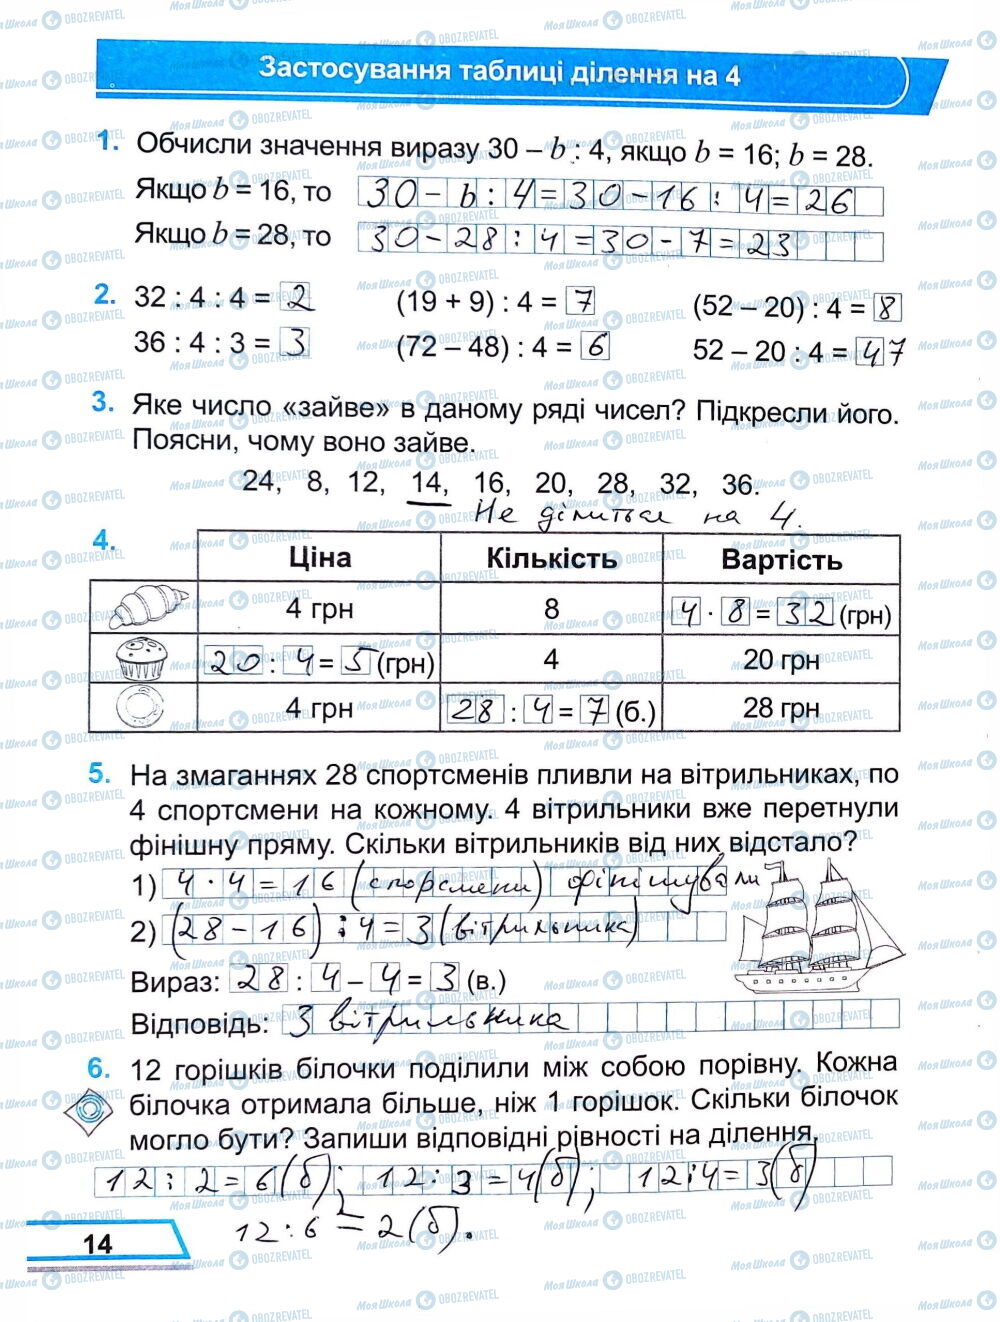 Застосування таблиці ділення на 4
1. Обчисли значення виразу 30 – b : 4, якщо b = 16; b = 28.
Якщо b = 16, то 30 - b : 4 = 30 - 16 : 4 = 26
Якщо b = 28, то 30 - 28 : 4 = 30 - 7 = 23
2. 32 : 4 : 4 = 2 (19 + 9) : 4 = 7 (52 – 20) : 4 = 8
36 : 4 : 3 = 3 (72 – 48) : 4 = 6 52 – 20 : 4 = 47
3. Яке число «зайве» в даному ряді чисел? Підкресли його.
Поясни, чому воно зайве.
24, 8, 12, 14, 16, 20, 28, 32, 36.
Не ділиться на 4.
4.
Ціна Кількість Вартість
4 грн 8 4 · 8 = 32 (грн)
20 : 4 = 5 (грн) 4 20 грн
4 грн 28 : 4 = 7 (б.) 28 грн
5. На змаганнях 28 спортсменів пливли на вітрильниках, по
4 спортсмени на кожному. 4 вітрильники вже перетнули
фінішну пряму. Скільки вітрильників від них відстало?
1) 4 · 4 = 16 (спорсмени) фінішували
2) (28 - 16) : 4 = 3 (вітрильника)
Вираз: 28 : 4 – 4 = 3 (в.)
Відповідь: 3 вітрильника
6. 12 горішків білочки поділили між собою порівну. Кожна
білочка отримала більше, ніж 1 горішок. Скільки білочок
могло бути? Запиши відповідні рівності на ділення.
12 : 2 = 6 (б); 12 : 3 = 4 (б); 12 : 4 = 3 (б)
12 : 6 = 2 (б).
14
МояШкола OBOZREVATEL